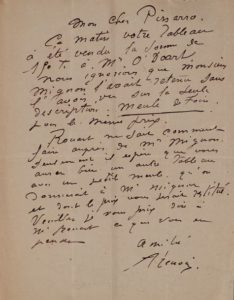 Mon cher Pissarro.
Ce matin votre Tableau
a été vendu la somme de
à Mr O'Doard
nous ignorions que monsieur
Mignon l'avait retenu sans
l'avoir vu sur la seule
description. Meule de foin
pour le même prix.
Rouart ne sait comment
faire auprès de Mr Mignon.
Seulement il espère que vous
aurez bien un autre Tableau
avec un petit meule. qu'on
donnerait à Mr Mignon
et dont le prix vous serait
Veuillez je vous prie dire à
Mr Rouart ce que vous en
pensez
Amitié
Renoir.